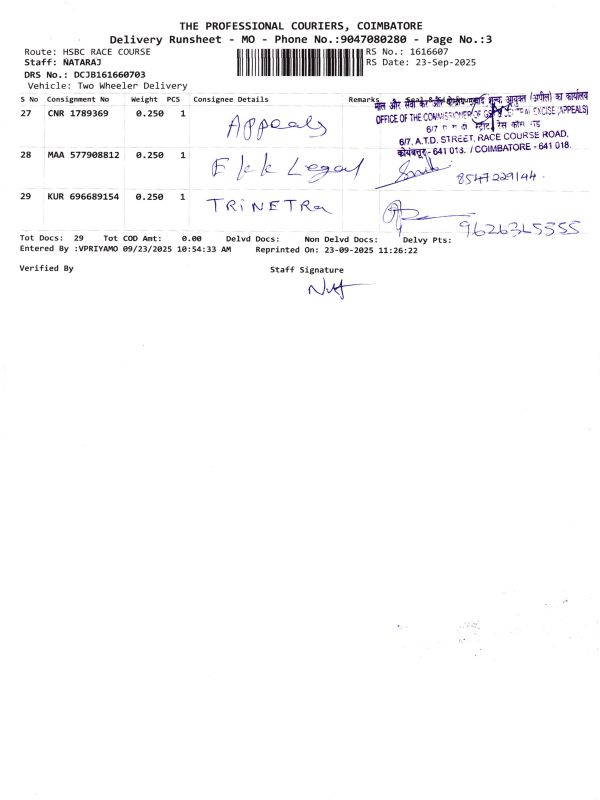 THE PROFESSIONAL COURIERS, COIMBATORE
Delivery Runsheet - MO - Phone No.:9047080280 - Page No.:3
Route: HSBC RACE COURSE
RS No.: 1616607
Staff: NATARAJ
RS Date: 23-Sep-2025
DRS No.: DCJB161660703
Vehicle: Two Wheeler Delivery
S No Consignment No Weight PCS Consignee Details Remarks
27 CNR 1789369 0.250 1 Appeals
OFFICE OF THE COMMISSIONER OF EXCISE (APPEALS)
6/7, A.T.D. STREET, RACE COURSE ROAD,
कोयंबत्तूर - 641 018. / COIMBATORE - 641 018.
28 MAA 577908812 0.250 1 Legal
8547229144
29 KUR 696689154 0.250 1 TRINETRa
9626345555
Tot Docs: 29 Tot COD Amt: 0.00 Delvd Docs: Non Delvd Docs: Delvy Pts:
Entered By :VPRIYAMO 09/23/2025 10:54:33 AM Reprinted On: 23-09-2025 11:26:22
Verified By Staff Signature